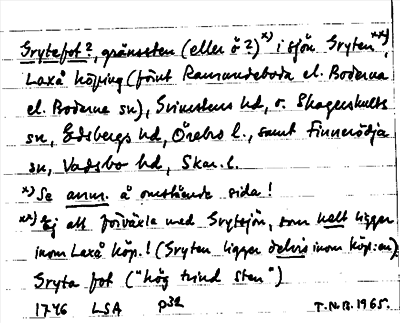 Grytefot?, gränssten (eller ö?)x) i sjön Gryten xx),
Laxå köping (förut Ramundeboda el. Boderna
el. Boderne sn), Grimstens hd, o. Skagershults
sn, Edsbergs hd, Örebro l., samt Finnerödja
sn, Vadsbo hd, Skar. l.
x) Se anm. å omstående sida!
xx) Ej att förväxla med Grytsjön, som helt ligger
inom Laxå köp.! (Gryten ligger delvis inom köp:en)
Gryta fot ("hög trind sten")
1746 LSA P32 T.N.B. 1965.